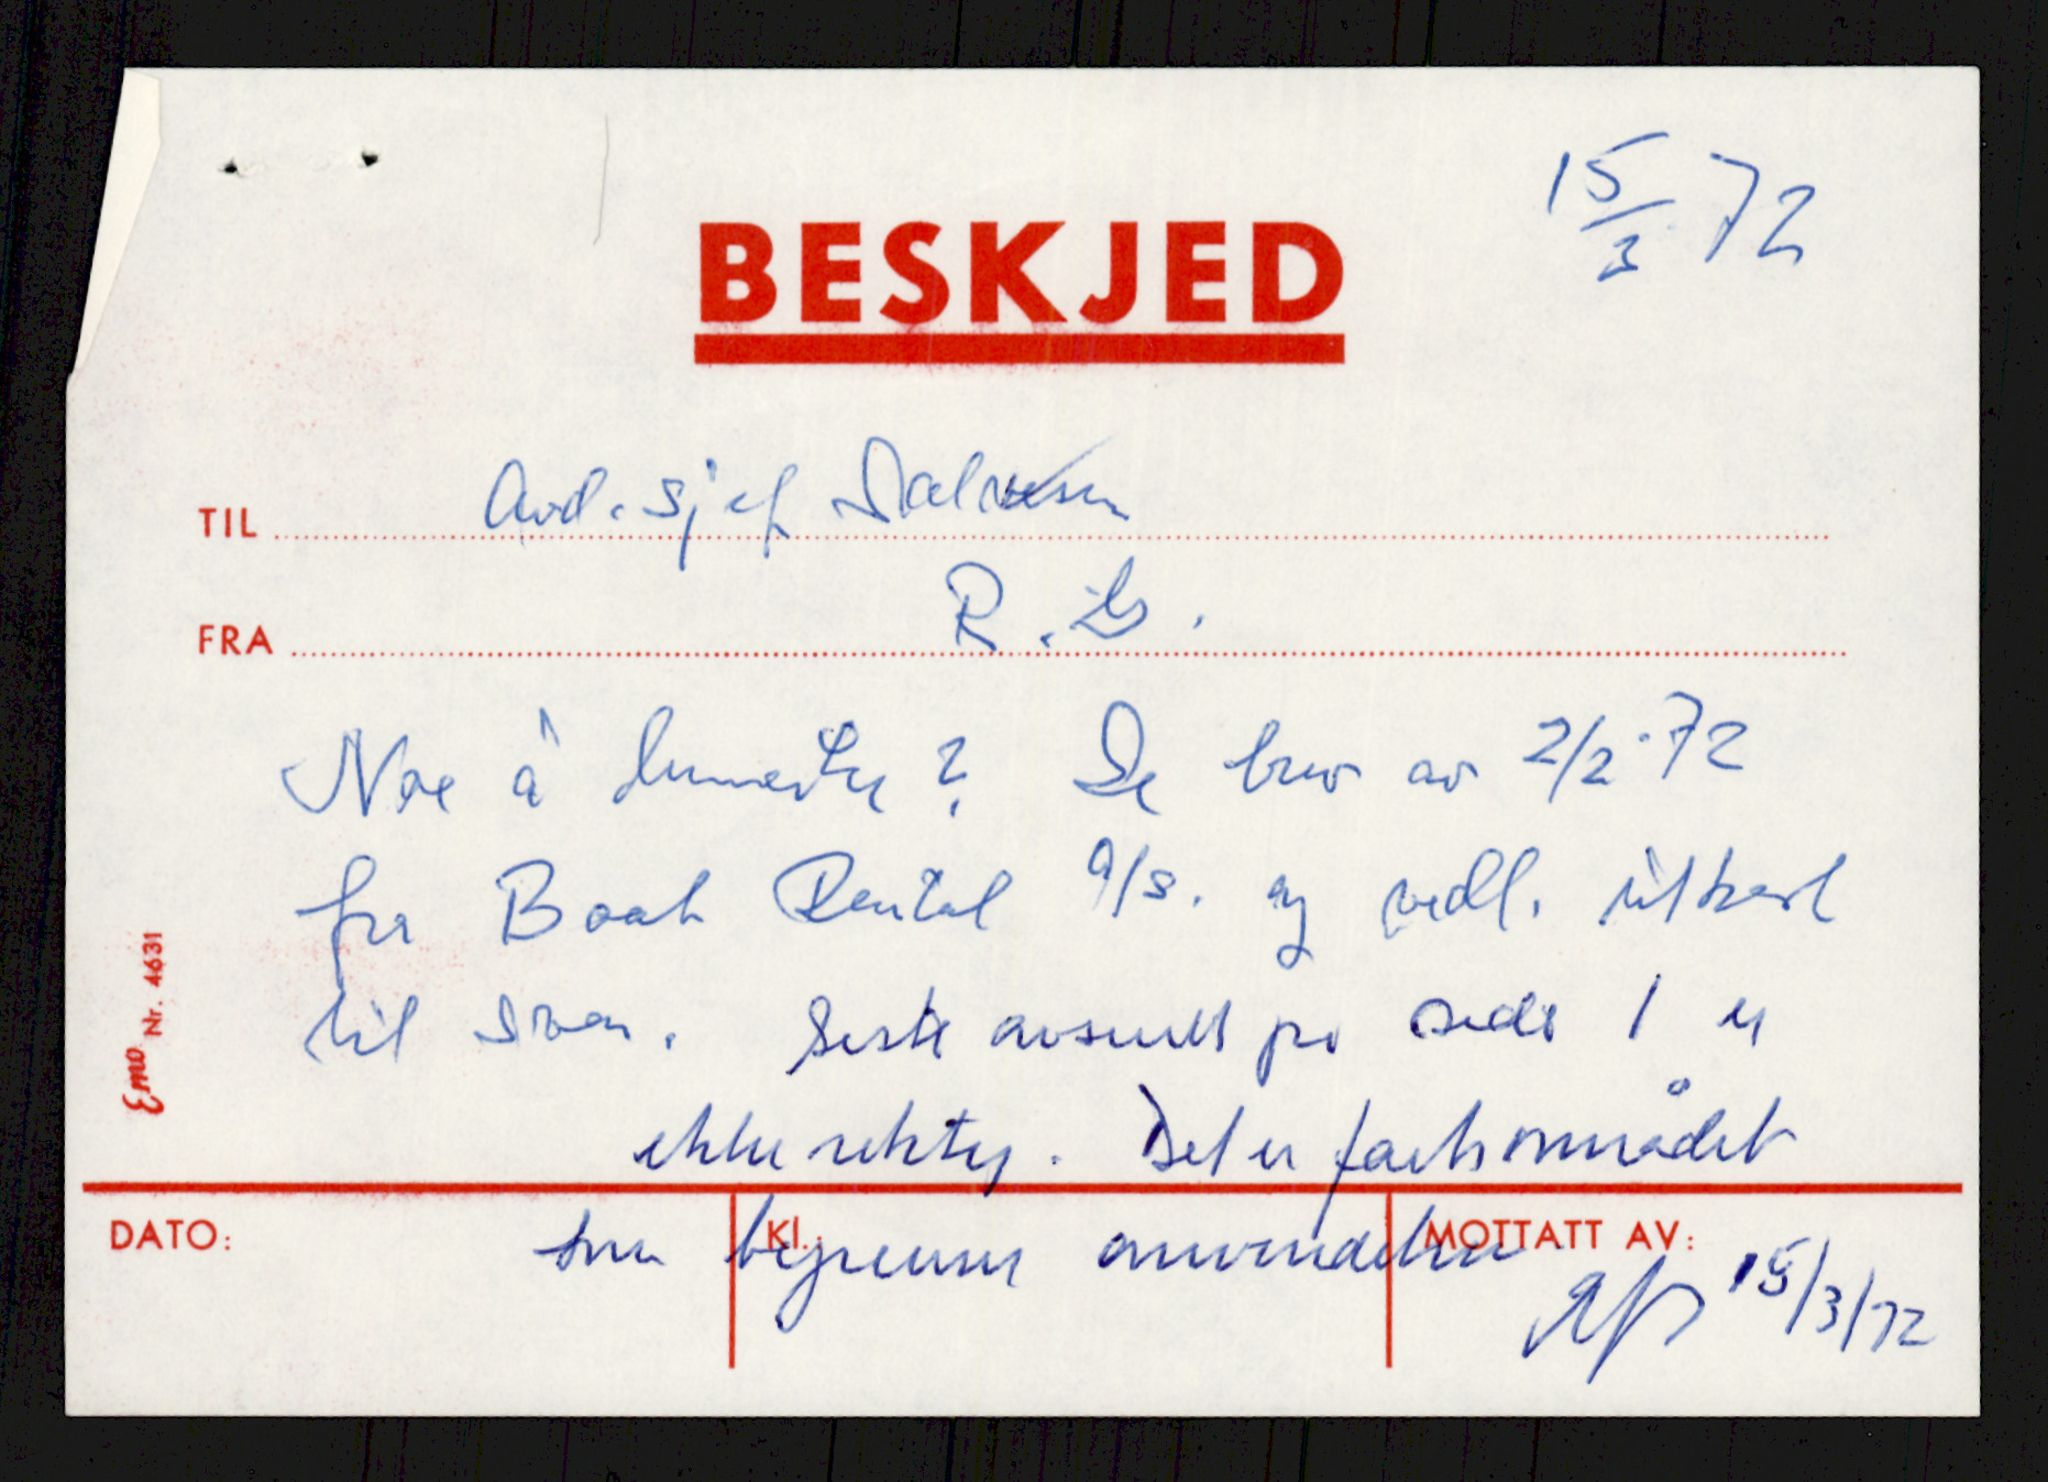 15/3 72
BESKJED
TIL Avd. sjef Salvesen
FRA R. B.
Noe å bemerke? Se brev av 2/2-72
fra Boat Rental A/S. og vedl. utkast
til svar. Siste avsnitt på side 1 er
ikke riktig. Det er fartsområdet
som begrenser anvendelsen
DATO: Kl.: MOTTATT AV:
15/3/72
Emo Nr. 4631